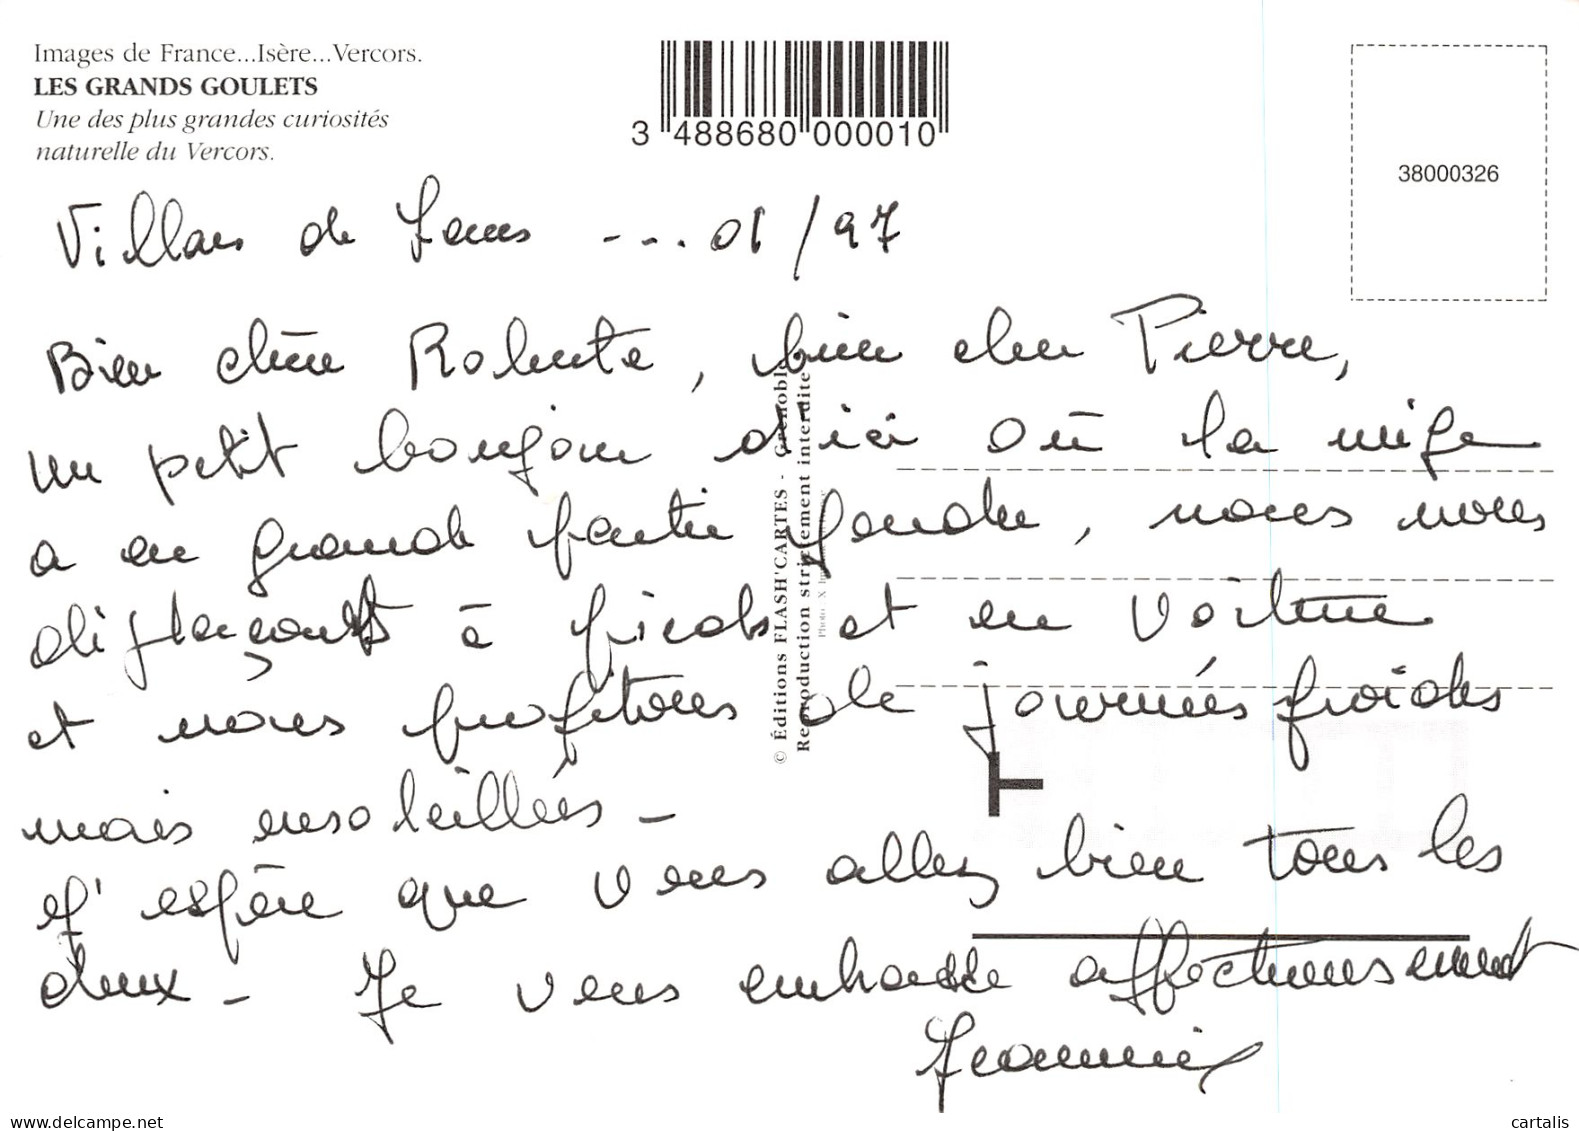 Images de France...Isère...Vercors.
LES GRANDS GOULETS
Une des plus grandes curiosités
naturelle du Vercors.
3 488680 000010
38000326
Villars de Lans ---. 01/97
Bien chère Roberte, bien cher Pierre,
un petit bonjour d'ici où la neige
a en grande partie fondue, nous nous
déplaçons à pieds et en voiture
et nous profitons de journées froides
mais ensoleillées -
J'espère que vous allez bien tous les
deux - Je vous embrasse affectueusement
Jeannine
© Éditions FLASH'CARTES - Grenoble
Reproduction strictement interdite
Photo X
delcampe.net
cartalis